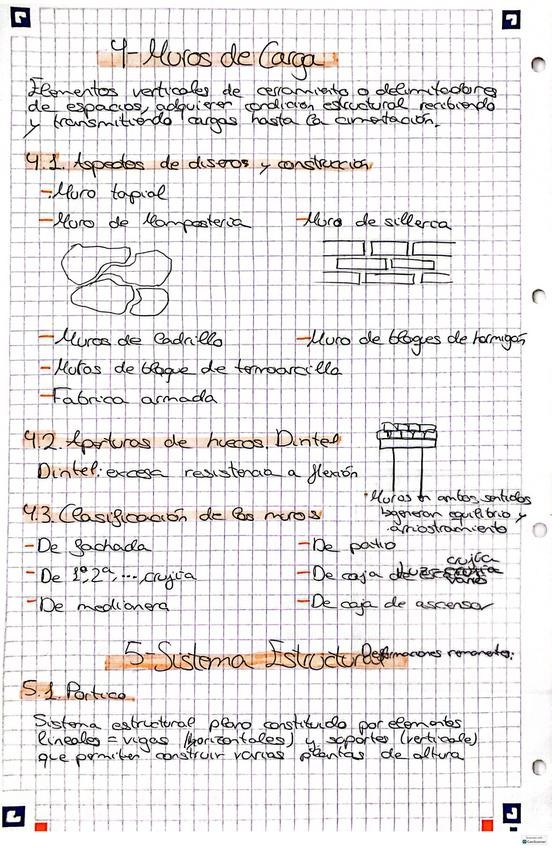 4-Muros de Carga
Elementos verticales de cerramiento o delimitadores
de espacios, adquieren condición estructural recibiendo
y transmitiendo cargas hasta la cimentación.
4.1. Aspectos de diseños y construcción
-Muro tapial
-Muro de Mampostería
-Muro de sillerca
-Muros de ladrillo
-Muro de bloques de hormigón
-Muros de bloque de termoarcilla
-Fabrica armada
4.2. Aperturas de huecos. Dintel
Dintel: excesa resistencia a flexión
*Muros en ambos sentidos
generan equilibrio y
arriostramiento
4.3. Clasificación de los muros
-De fachada
-De patio
-De 1ª, 2ª, ... crujía
-De caja de
crujía
vano
-De medianera
-De caja de ascensor
5-Sistema Estructural
5.1. Portico
Sistema estructural plano constituido por elementos
lineales = vigas (horizontales) y soportes (verticale)
que permiten construir varias plantas de altura